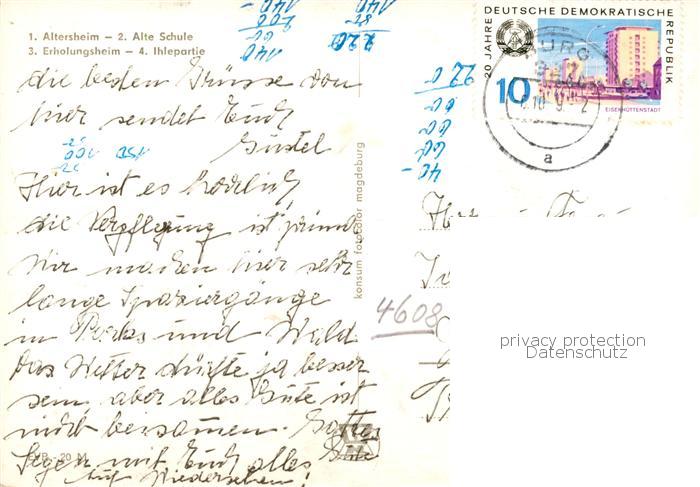 1. Altersheim – 2. Alte Schule
3. Erholungsheim – 4. Ihlepartie
die besten Grüsse von
hier sendet Euch
Gustel
Hier ist es herrlich,
die Verpflegung ist prima
Wir machen hier sehr
lange Spaziergänge
in Parks und Wald
Das Wetter dürfte ja besser
sein, aber alles Gute ist
nicht beisammen. Gottes
Segen mit Euch alles Gute
Auf Wiedersehen!
EVP -.20 M
konsum fotocolor magdeburg
20 JAHRE DEUTSCHE DEMOKRATISCHE REPUBLIK
10
EISENHÜTTENSTADT
BURG
a
4608
140
200
60
140
220
150
100
92
60
60
40
privacy protection
Datenschutz